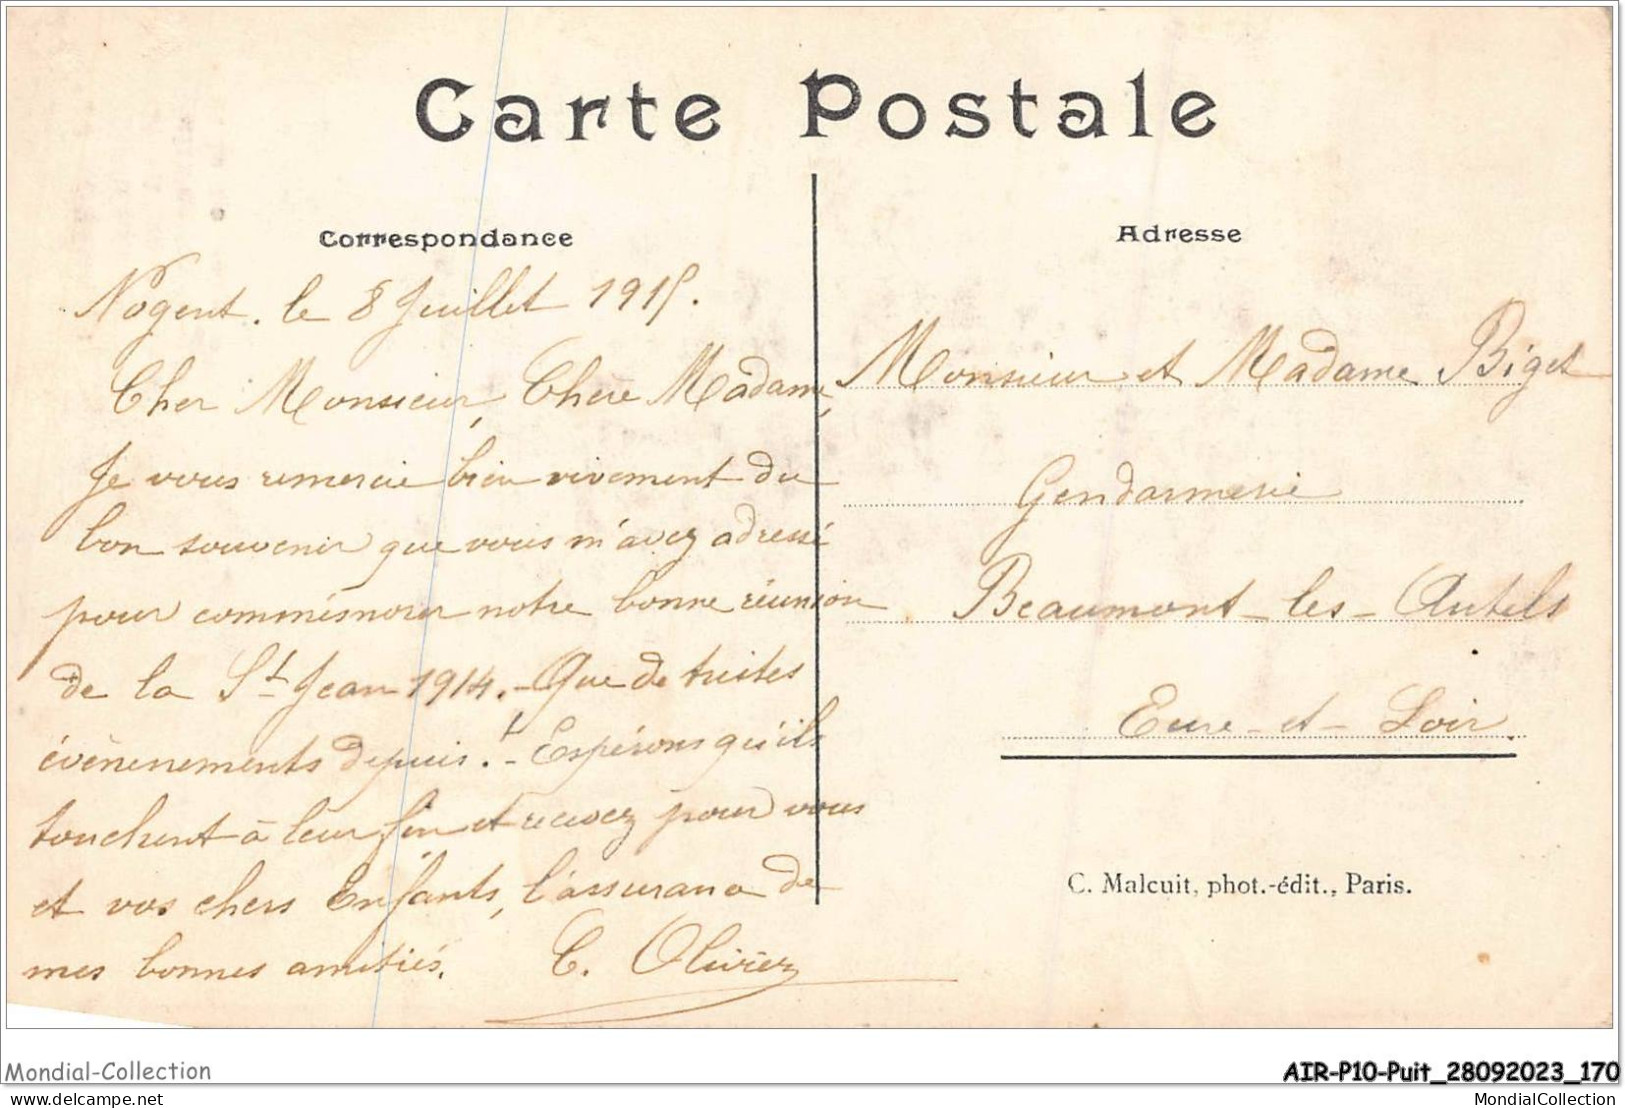 Carte Postale
Correspondance
Nogent. le 8 Juillet 1915.
Cher Monsieur, Chère Madame,
Je vous remercie bien vivement du
bon souvenir que vous m'avez adressé
pour commémorer notre bonne réunion
de la St Jean 1914. - Que de tristes
évènenements depuis! - Espérons qu'ils
touchent à leur fin et recevez pour vous
et vos chers Enfants, l'assurance de
mes bonnes amitiés. C. Olivier
Adresse
Monsieur et Madame Biget
Gendarmerie
Beaumont-les-Autels
Eure-et-Loir.
C. Malcuit, phot.-édit., Paris.
Mondial-Collection
AIR-P10-Puit_28092023_170
delcampe.net
MondialCollection